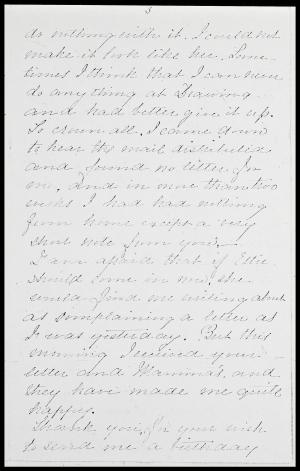 3
do nothing with it. I could not
make it look like her. Some-
times I think that I can never
do anything at Drawing
and had better give it up.
To crown all, I came down
to hear the mail distributed
and found no letter for
me, and in more than two
weeks I had had nothing
from home except a very
short note from you.
I am afraid that if Ellie
should come in now she
would find me writing about
as complaining a letter as
it was yesterday. But this
morning I received your
letter and Mamma's, and
they have made me quite
happy.
Thank you for your wish
to send me a birthday